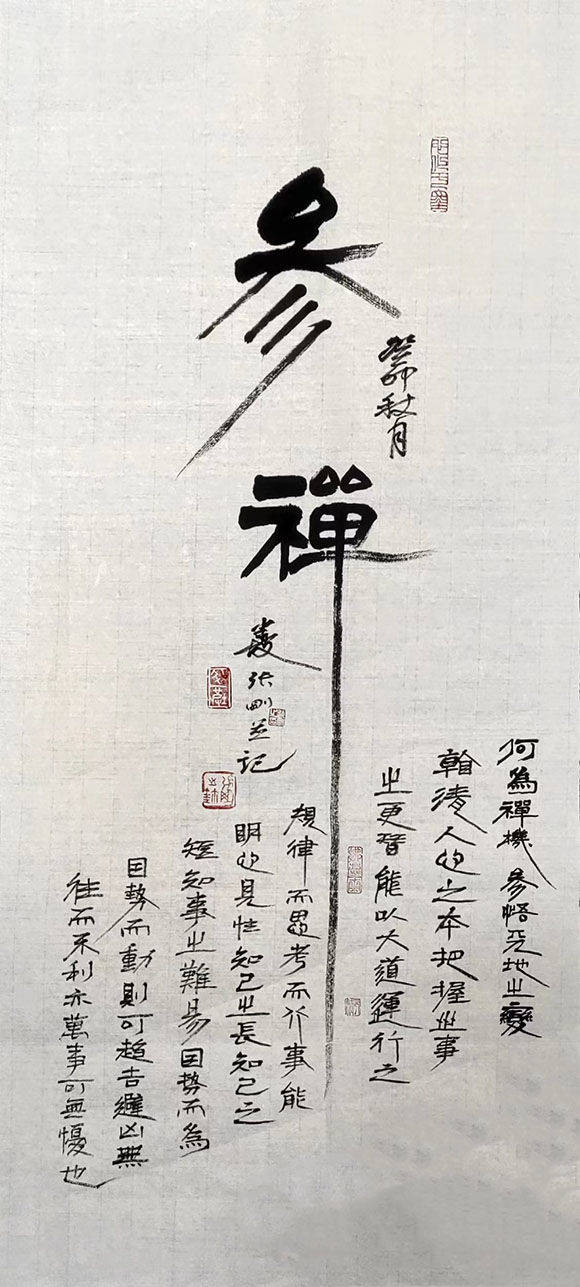 参
禪
癸卯秋月
张刚並记
何為禪機參悟天地之變
清人心之本把握世事
之更替能以大道運行之
規律而思考而行事能
明心見性知己之長知己之
短知事之難易因勢而為
因勢而動則可趨吉避凶無
往而不利亦萬事可無懮也